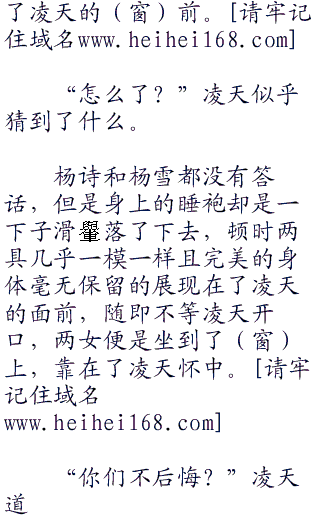 了凌天的（窗）前。[请牢记
住域名www.heihei168.com]
“怎么了？”凌天似乎
猜到了什么。
杨诗和杨雪都没有答
话，但是身上的睡袍却是一
下子滑落了下去，顿时两
具几乎一模一样且完美的身
体毫无保留的展现在了凌天
的面前，随即不等凌天开
口，两女便是坐到了（窗）
上，靠在了凌天怀中。[请牢
记住域名
www.heihei168.com]
“你们不后悔？”凌天
道